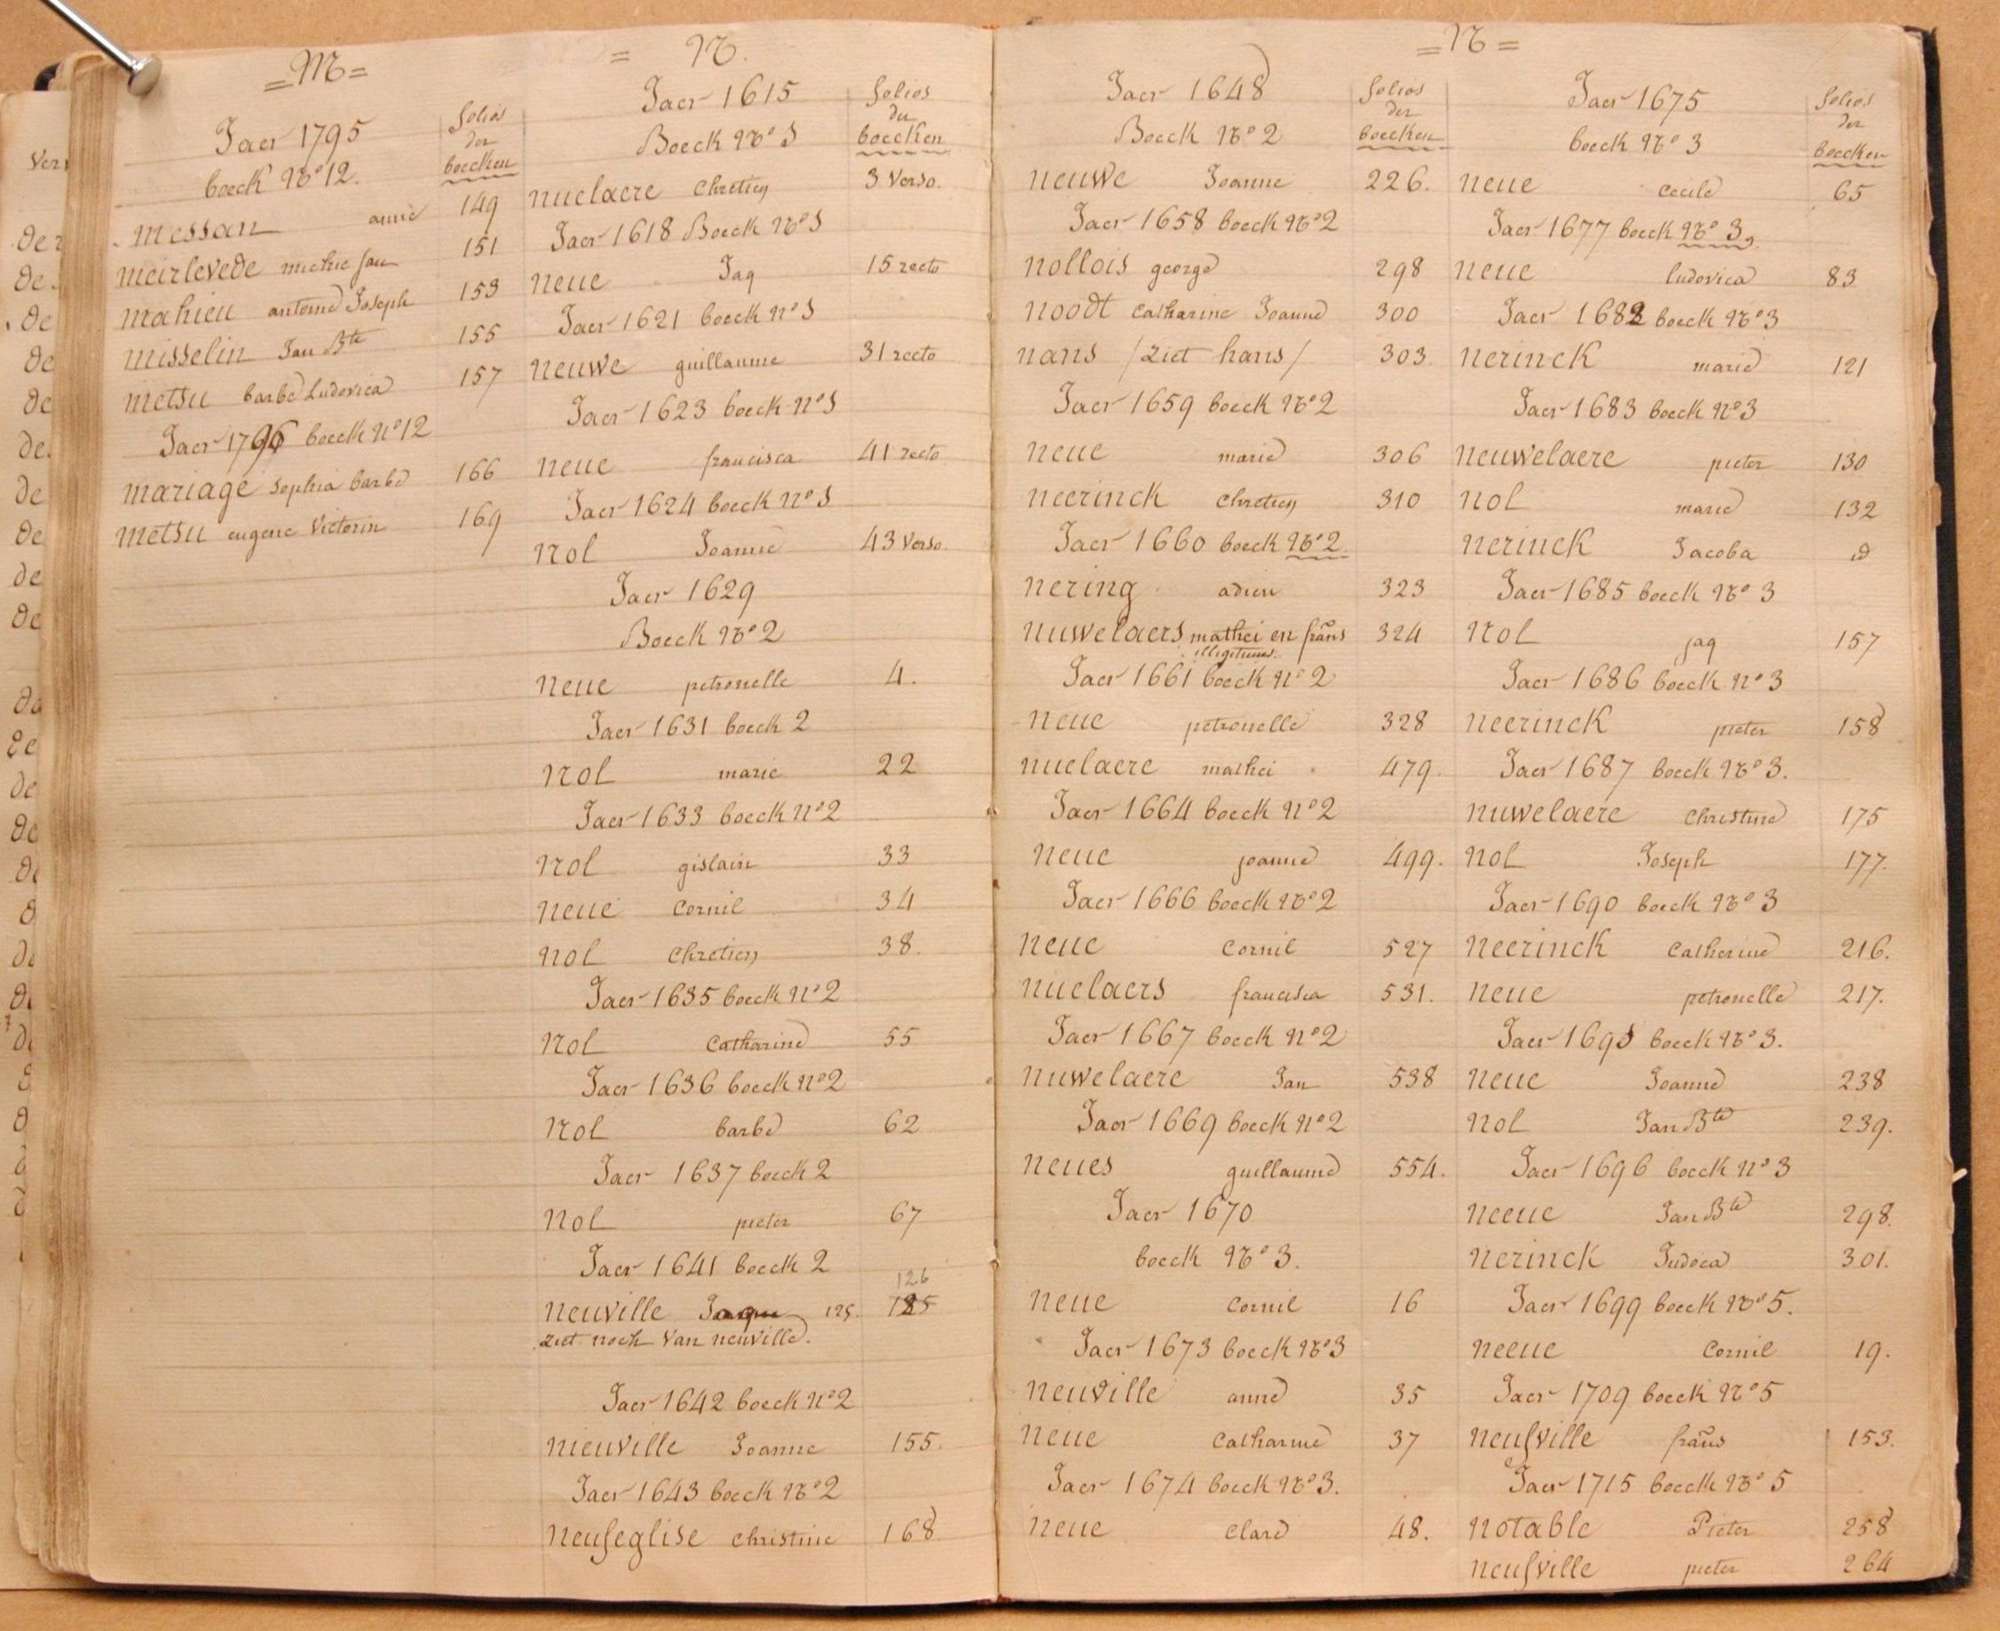 =M=
Jaer 1795
folios
der
boecken
boeck No 12.
messan anne 149
meirlevede michie Jan 151
mahieu antoine Joseph 153
misselin Jan Bte 155
metsu barbe Ludovica 157
Jaer 1796 boeck No 12
mariage sophia barbe 166
metsu eugene Victorin 169
= N.
Jaer 1615
folios
der
boecken
Boeck No 1
nuelaere Chretien 3 Verso.
Jaer 1618 Boeck No 1
neue Jaq 15 recto
Jaer 1621 boeck No 1
neuwe guillaume 31 recto
Jaer 1623 boeck No 1
neue francisca 41 recto
Jaer 1624 boeck No 1
nol Joanne 43 Verso.
Jaer 1629
Boeck No 2
neue petronelle 4.
Jaer 1631 boeck 2
nol marie 22
Jaer 1633 boeck No 2
nol gislain 33
neue Cornil 34
nol Chretien 38.
Jaer 1635 boeck No 2
nol Catharine 55
Jaer 1636 boeck No 2
nol barbe 62
Jaer 1637 boeck 2
nol pieter 67
Jaer 1641 boeck 2
126
neuville Jaque 125. 125
ziet noch Van neuville.
Jaer 1642 boeck No 2
nieuville Joanne 155.
Jaer 1643 boeck No 2
neufeglise Christine 168.
=N=
Jaer 1648
folios
der
boecken
Boeck No 2
neuwe Joanne 226.
Jaer 1658 boeck No 2
nollois george 298
noodt Catharine Joanne 300
nans /ziet hans/ 303
Jaer 1659 boeck No 2
neue marie 306
neerinck Chretien 310
Jaer 1660 boeck No 2.
nering adien 323
nuwelaers mathei en frans 324
illigitimes.
Jaer 1661 boeck No 2
neue petronelle 328
nuelaere mathei 479.
Jaer 1664 boeck No 2
neue joanne 499.
Jaer 1666 boeck No 2
neue Cornil 527
nuelaers francisca 531.
Jaer 1667 boeck No 2
nuwelaere Jan 538
Jaer 1669 boeck No 2
neues guillaume 554.
Jaer 1670
boeck No 3.
neue Cornil 16
Jaer 1673 boeck No 3
neuville anne 35
neue Catharine 37
Jaer 1674 boeck No 3.
neue Clare 48.
Jaer 1675
folios
der
boecken
boeck No 3
neue Cecile 65
Jaer 1677 boeck No 3,
neue ludovica 83
Jaer 1682 boeck No 3
nerinck marie 121
Jaer 1683 boeck No 3
neuwelaere pieter 130
nol marie 132
nerinck Jacoba d
Jaer 1685 boeck No 3
nol jaq 157
Jaer 1686 boeck No 3
neerinck pieter 158
Jaer 1687 boeck No 3.
nuwelaere Christine 175
nol Joseph 177.
Jaer 1690 boeck No 3
neerinck Catherine 216.
neue petronelle 217.
Jaer 1691 boeck No 3.
neue Joanne 238
nol Jan Bte 239.
Jaer 1696 boeck No 3
neeue Jan Bte 298.
nerinck Judoca 301.
Jaer 1699 boeck No 5.
neeue Cornil 19.
Jaer 1709 boeck No 5
neufville frans 153.
Jaer 1715 boeck No 5
notable Pieter 258
neufville pieter 264